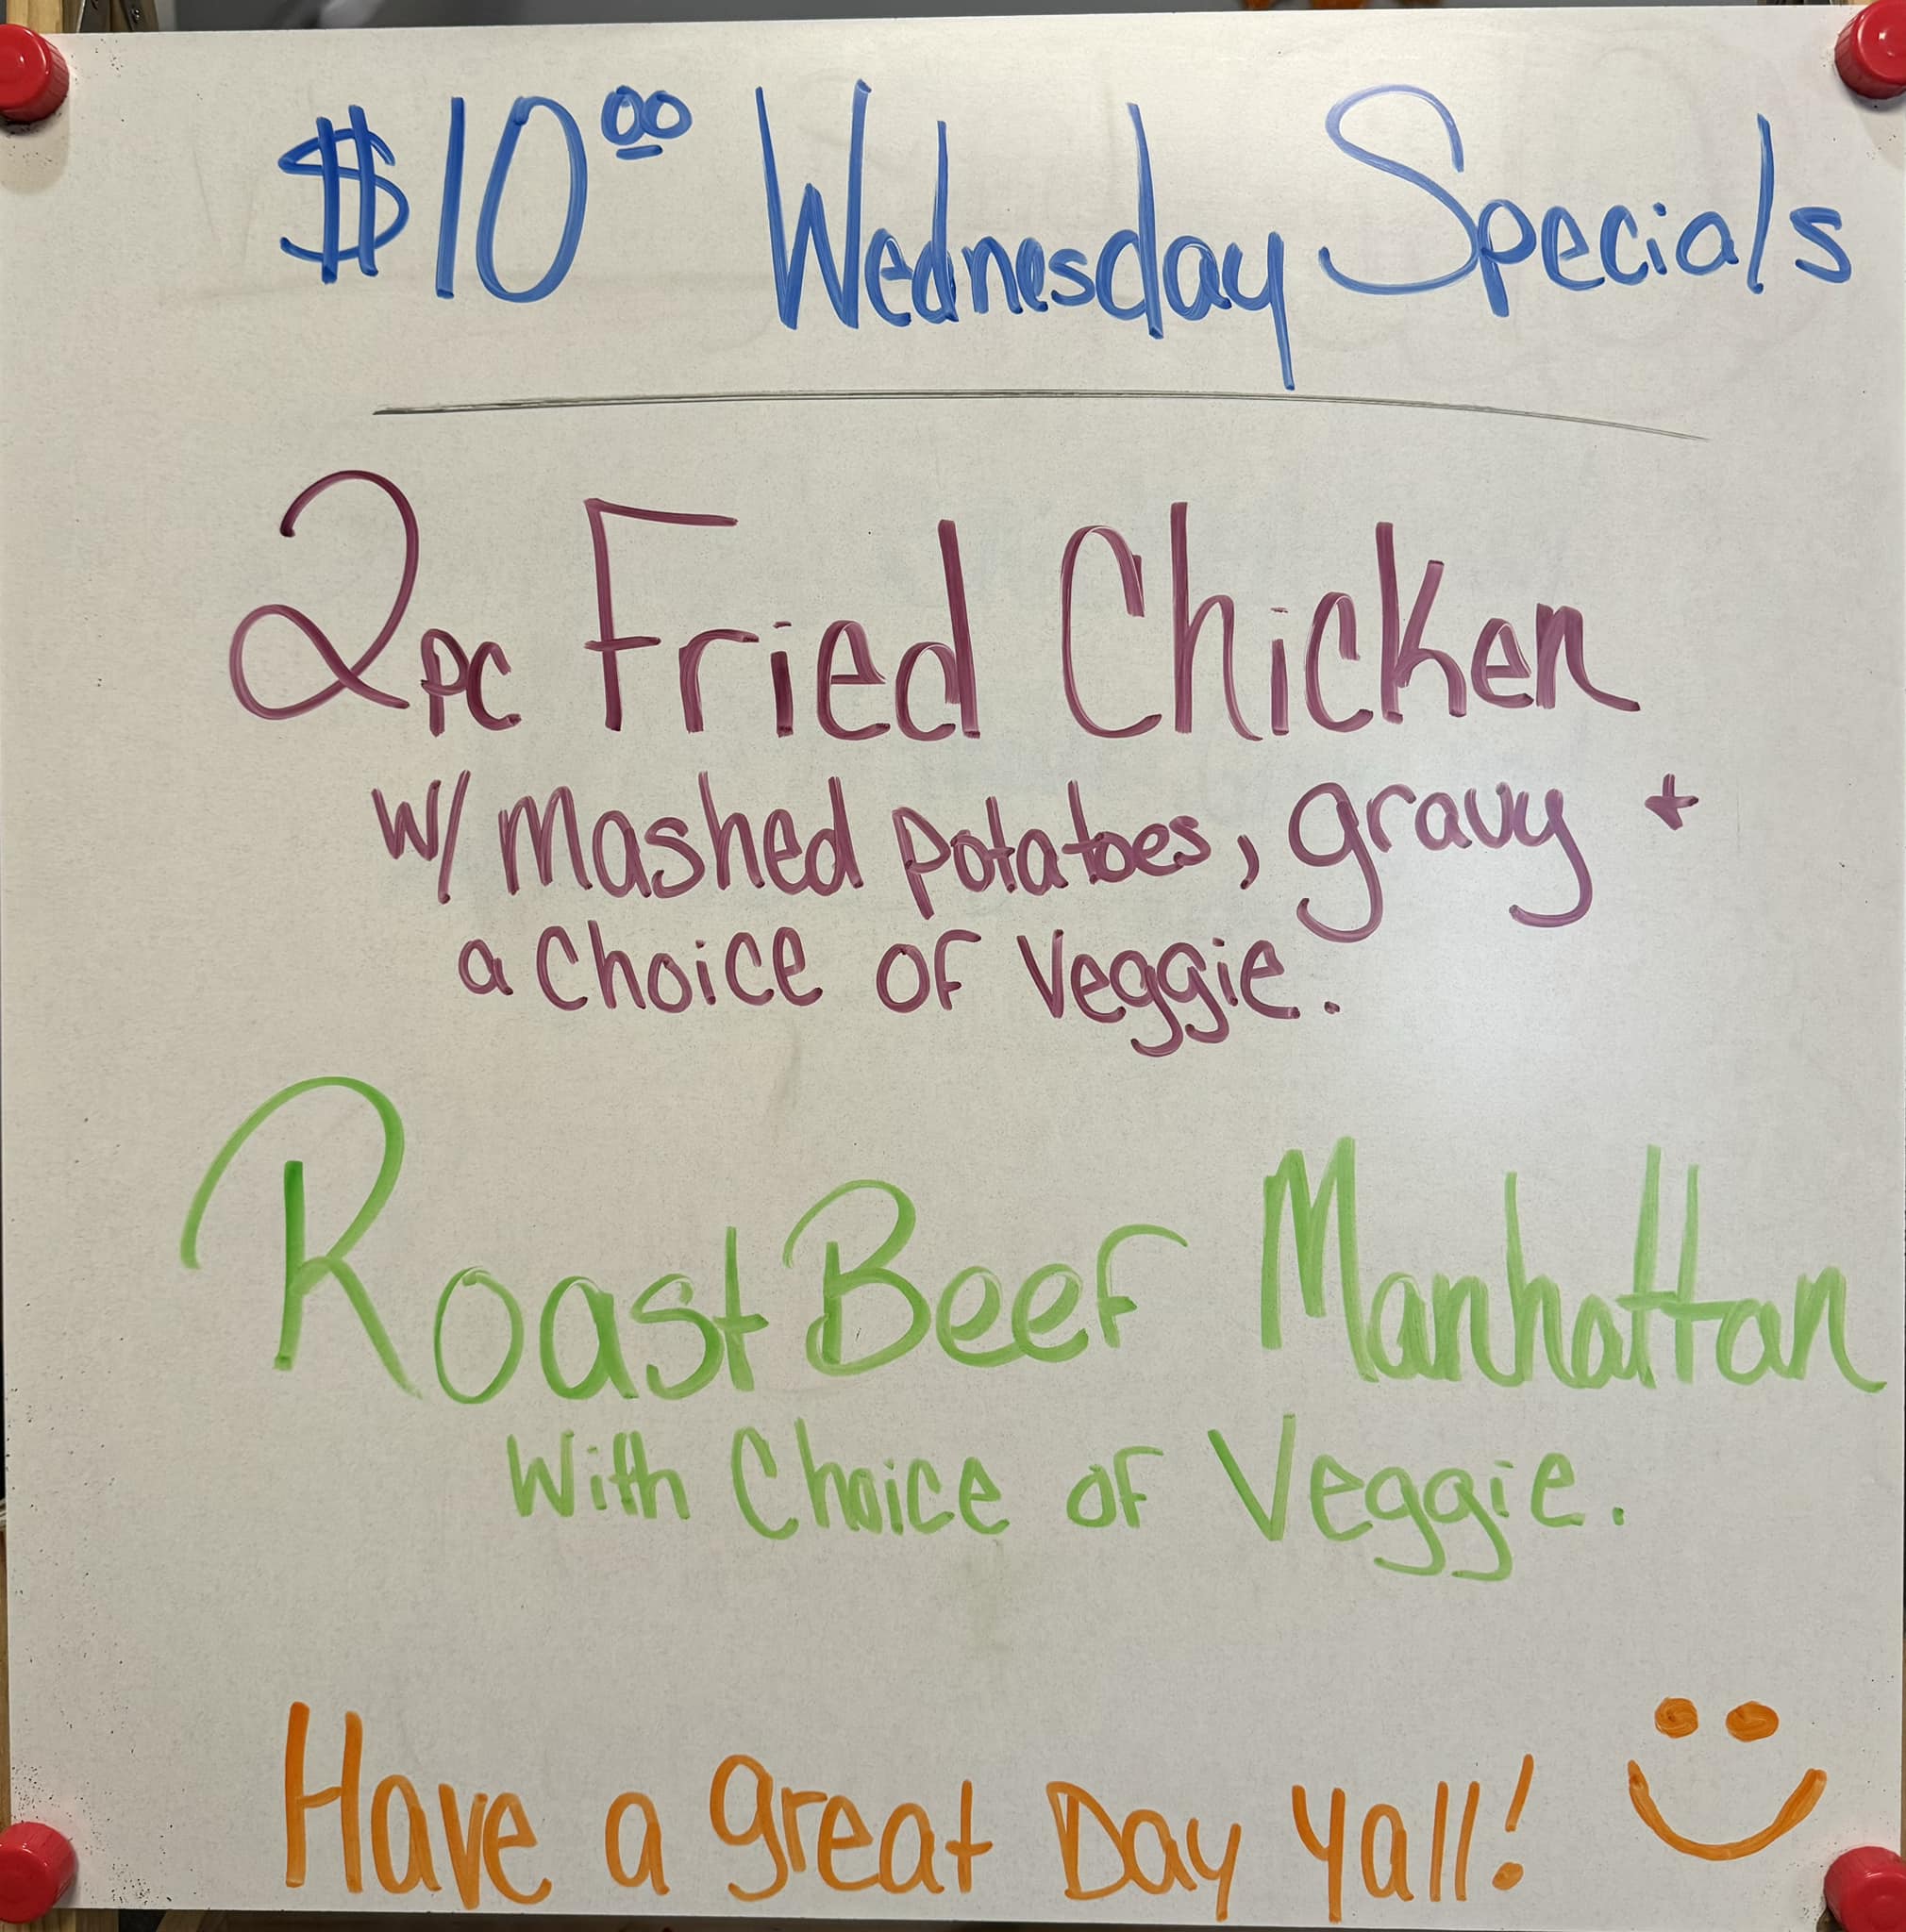 $10.00 Wednesday Specials
2pc Fried Chicken
w/ Mashed potatoes, gravy +
a Choice of Veggie.
Roast Beef Manhattan
With Choice of Veggie.
Have a great Day Yall!